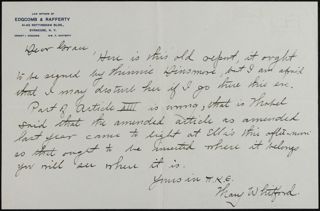 LAW OFFICES OF
EDGCOMB & RAFFERTY
SYRACUSE, N. Y.
Dear Grace
Here is this old report, it ought
to be signed by Minnie Dinsmore, but I am afraid
that I may disturb her if I go there this eve.
Part of Article XIII is wrong, that is Mabel
said that the amended article as amended
last year came to light at this afternoon
so that ought to be inserted where it belongs
you will see where it is.
Yours in
Mary Whitford